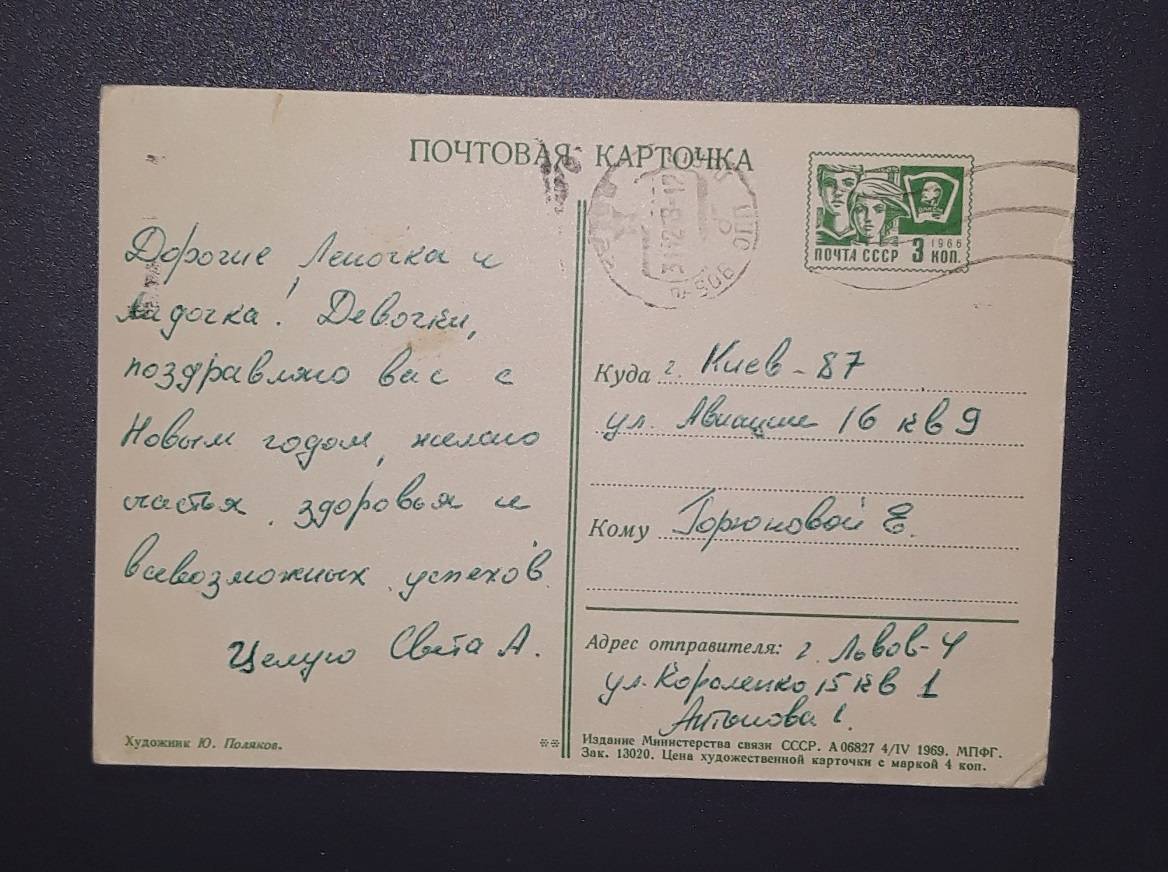 ПОЧТОВАЯ КАРТОЧКА
1966
ПОЧТА СССР 3 КОП.
Дорогие Леночка и
Ладочка! Девочки,
поздравляю вас с
Новым годом, желаю
счастья, здоровья и
всевозможных успехов
Целую Света А.
Куда г. Киев - 87
ул. Авиации 16 кв 9
Кому Горюновой Е.
Адрес отправителя: г. Львов-4
ул. Короленко 15 кв 1
Антонова С.
Художник Ю. Поляков.
Издание Министерства связи СССР. А 06827 4/IV 1969. МПФГ.
Зак. 13020. Цена художественной карточки с маркой 4 коп.